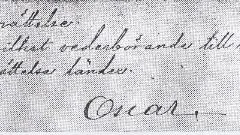 rättelse.
vederbörande till
rättelse länder.
Oscar.